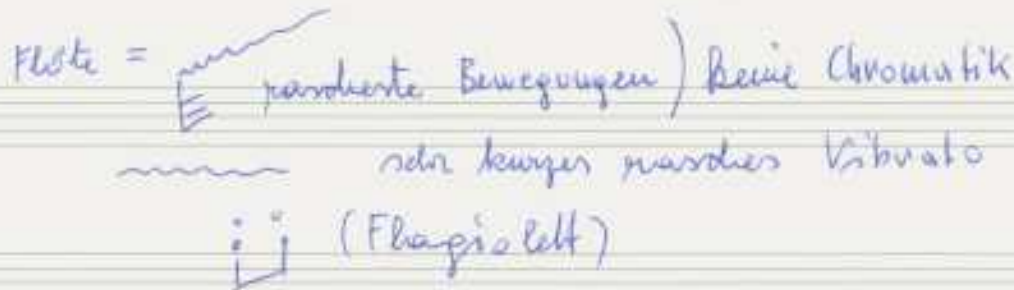 Flöte =
rascheste Bewegungen) keine Chromatik
sehr kurzes rasches Vibrato
(Flageolett)